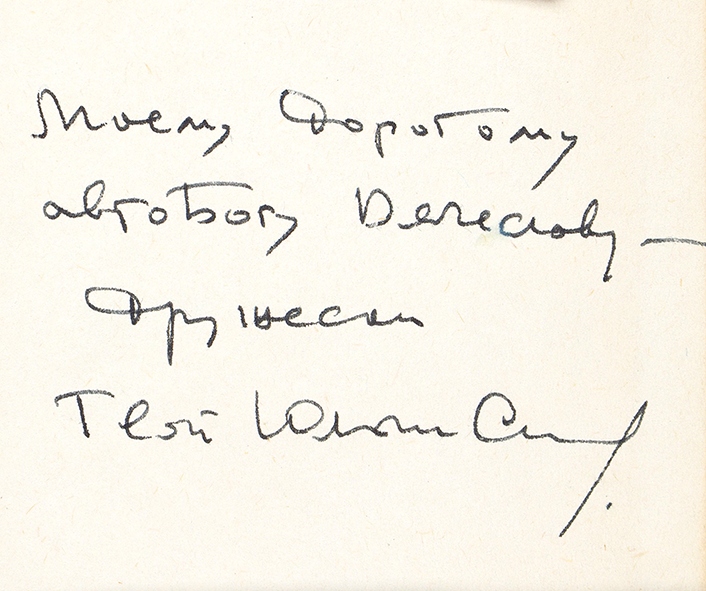 Моему дорогому
автобогу Вячеславу —
дружески
Твой Юлиан С